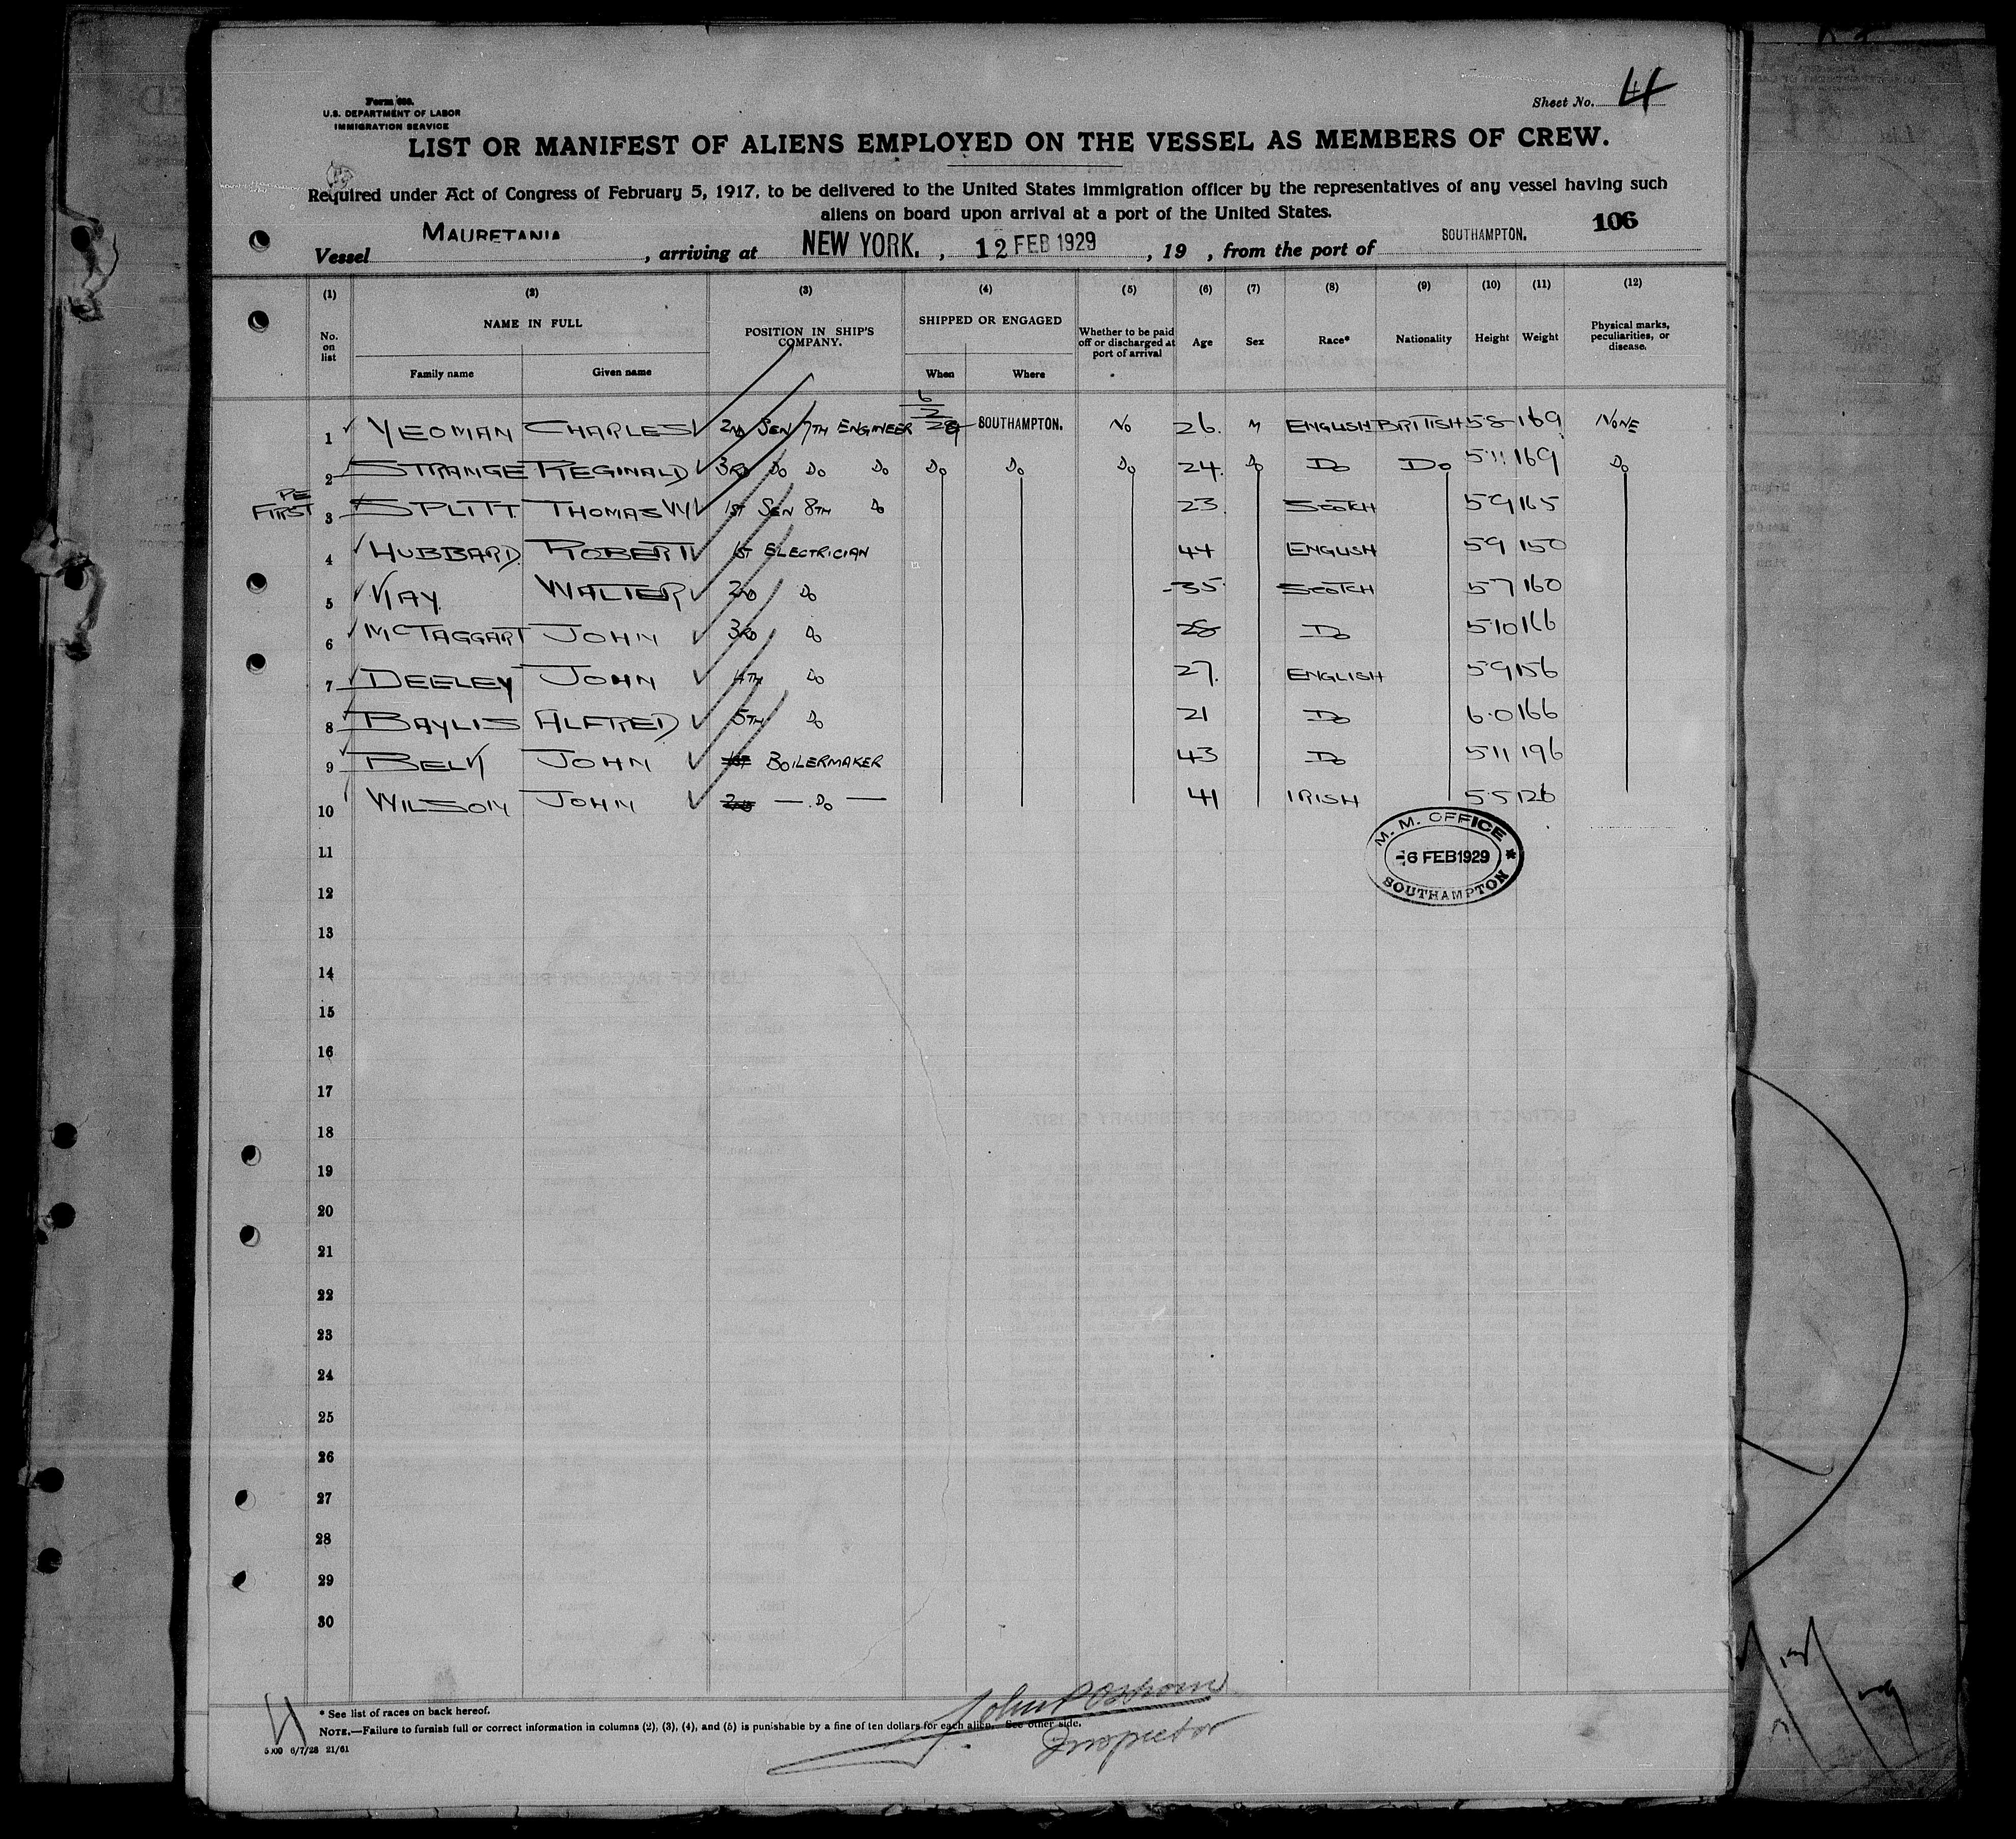 Form 680.
U.S. DEPARTMENT OF LABOR
IMMIGRATION SERVICE
Sheet No. 4
LIST OR MANIFEST OF ALIENS EMPLOYED ON THE VESSEL AS MEMBERS OF CREW.
Required under Act of Congress of February 5, 1917, to be delivered to the United States immigration officer by the representatives of any vessel having such
aliens on board upon arrival at a port of the United States.
106
Vessel MAURETANIA, arriving at NEW YORK., 12 FEB 1929, 19 , from the port of SOUTHAMPTON.
(1) (2) (3) (4) (5) (6) (7) (8) (9) (10) (11) (12)
No. on list NAME IN FULL POSITION IN SHIP'S COMPANY. SHIPPED OR ENGAGED Whether to be paid off or discharged at port of arrival Age Sex Race* Nationality Height Weight Physical marks, peculiarities, or disease.
Family name Given name When Where
1 YEOMAN CHARLES 2ND SEN 7TH ENGINEER 6/2/29 SOUTHAMPTON. NO 26. M ENGLISH BRITISH 5·8 169 NONE
2 STRANGE REGINALD 3RD DO DO DO DO DO DO 24. DO DO DO 5·11 169 DO
PE FIRST 3 SPLITT THOMAS W 1ST SEN 8TH DO 23 SCOTCH 5·9 165
4 HUBBARD. ROBERT 1ST ELECTRICIAN 44 ENGLISH 5·9 150
5 KAY. WALTER 2ND DO 35 SCOTCH 5·7 160
6 MCTAGGART JOHN 3RD DO 28 DO 5·10 166
7 DEELEY JOHN 4TH DO 27. ENGLISH 5·9 156
8 BAYLIS ALFRED 5TH DO 21 DO 6·0 166
9 BELK JOHN 1ST BOILERMAKER 43 DO 5·11 196
10 WILSON JOHN 2ND — DO — 41 IRISH 5·5 126
M. M. OFFICE
-6 FEB 1929
SOUTHAMPTON
11
12
13
14
15
16
17
18
19
20
21
22
23
24
25
26
27
28
29
30
4
* See list of races on back hereof.
NOTE.—Failure to furnish full or correct information in columns (2), (3), (4), and (5) is punishable by a fine of ten dollars for each alien. See other side.
5,00 6/7/28 21/61
Inspector